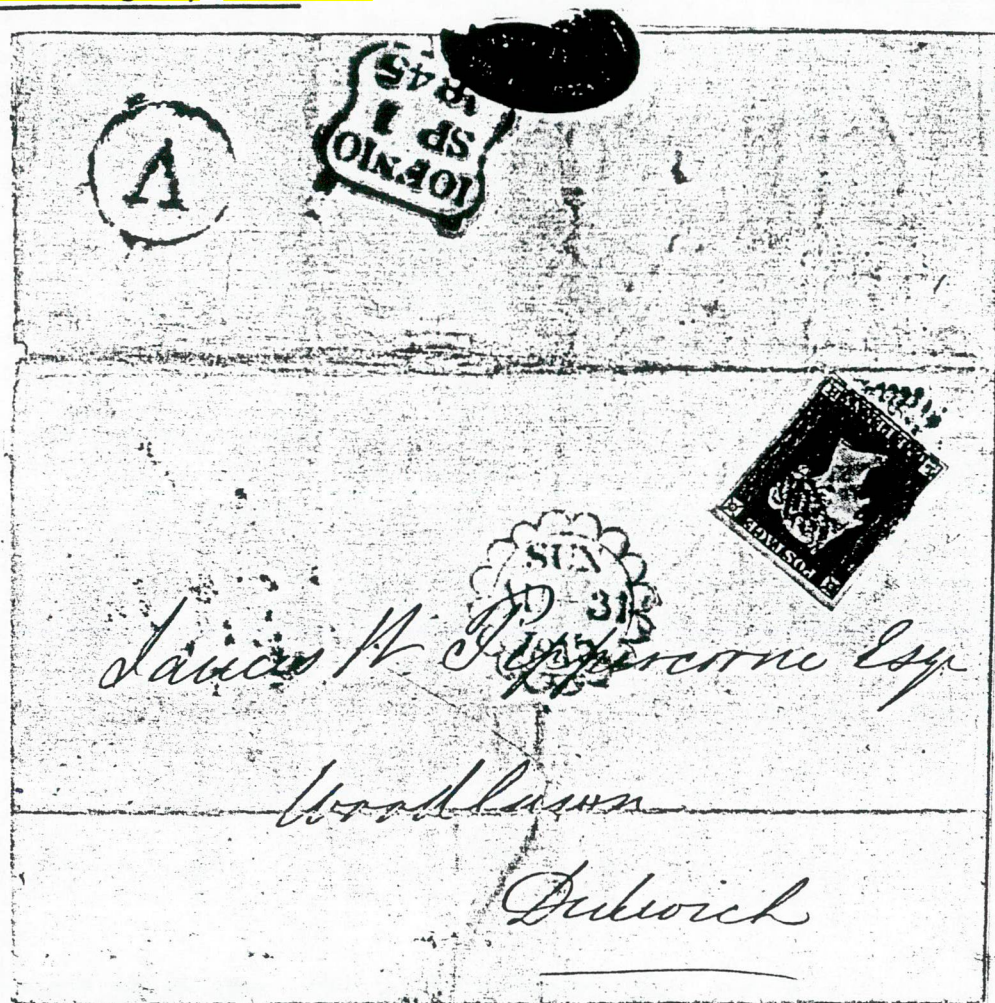 V
10FN10
SP 1
1845
POSTAGE
SUN
31
1845
James H Peppercorne Esqr
Woodlawn
Dulwich